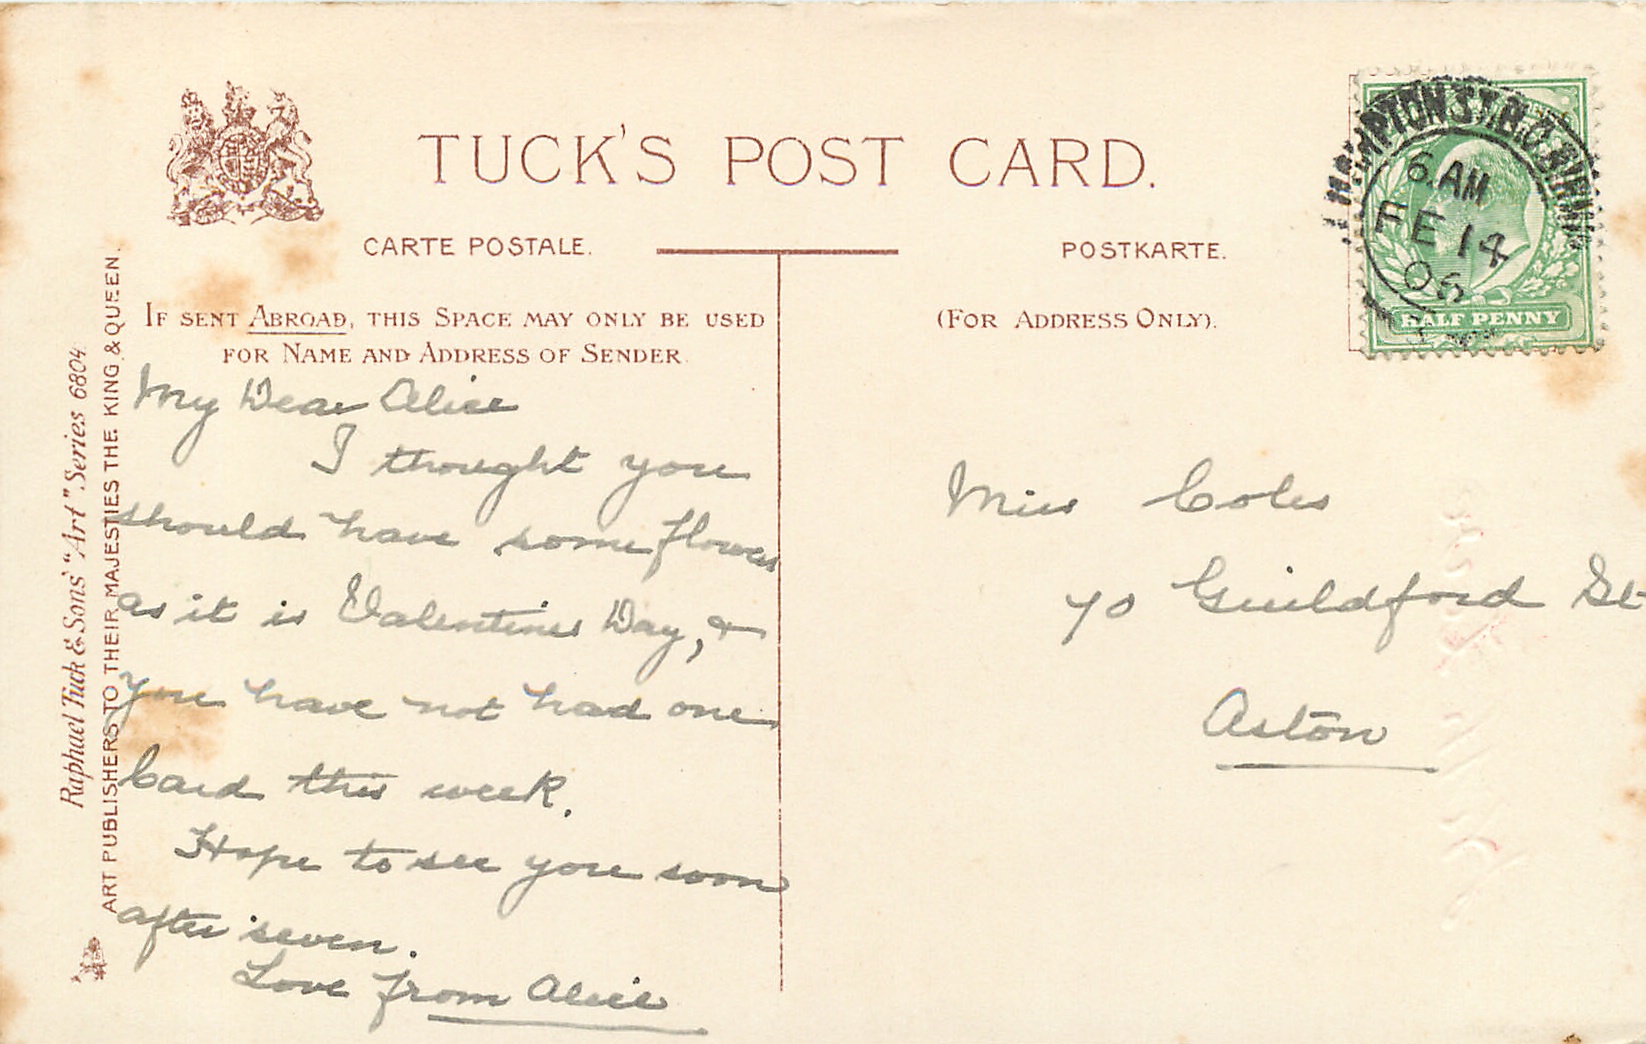 TUCK'S POST CARD.
CARTE POSTALE.
POSTKARTE.
IF SENT ABROAD, THIS SPACE MAY ONLY BE USED
FOR NAME AND ADDRESS OF SENDER
(FOR ADDRESS ONLY).
Raphael Tuck & Sons' "Art" Series 6804
ART PUBLISHERS TO THEIR MAJESTIES THE KING & QUEEN.
My Dear Alice
I thought you
should have some flowers
as it is Valentines Day, &
you have not had one
Card this week.
Hope to see you soon
after seven.
Love from Alice
Miss Coles
70 Guildford St
Aston
HAMPTON ST. B.O. BIRM
6. AM
FE 14
06
HALF PENNY